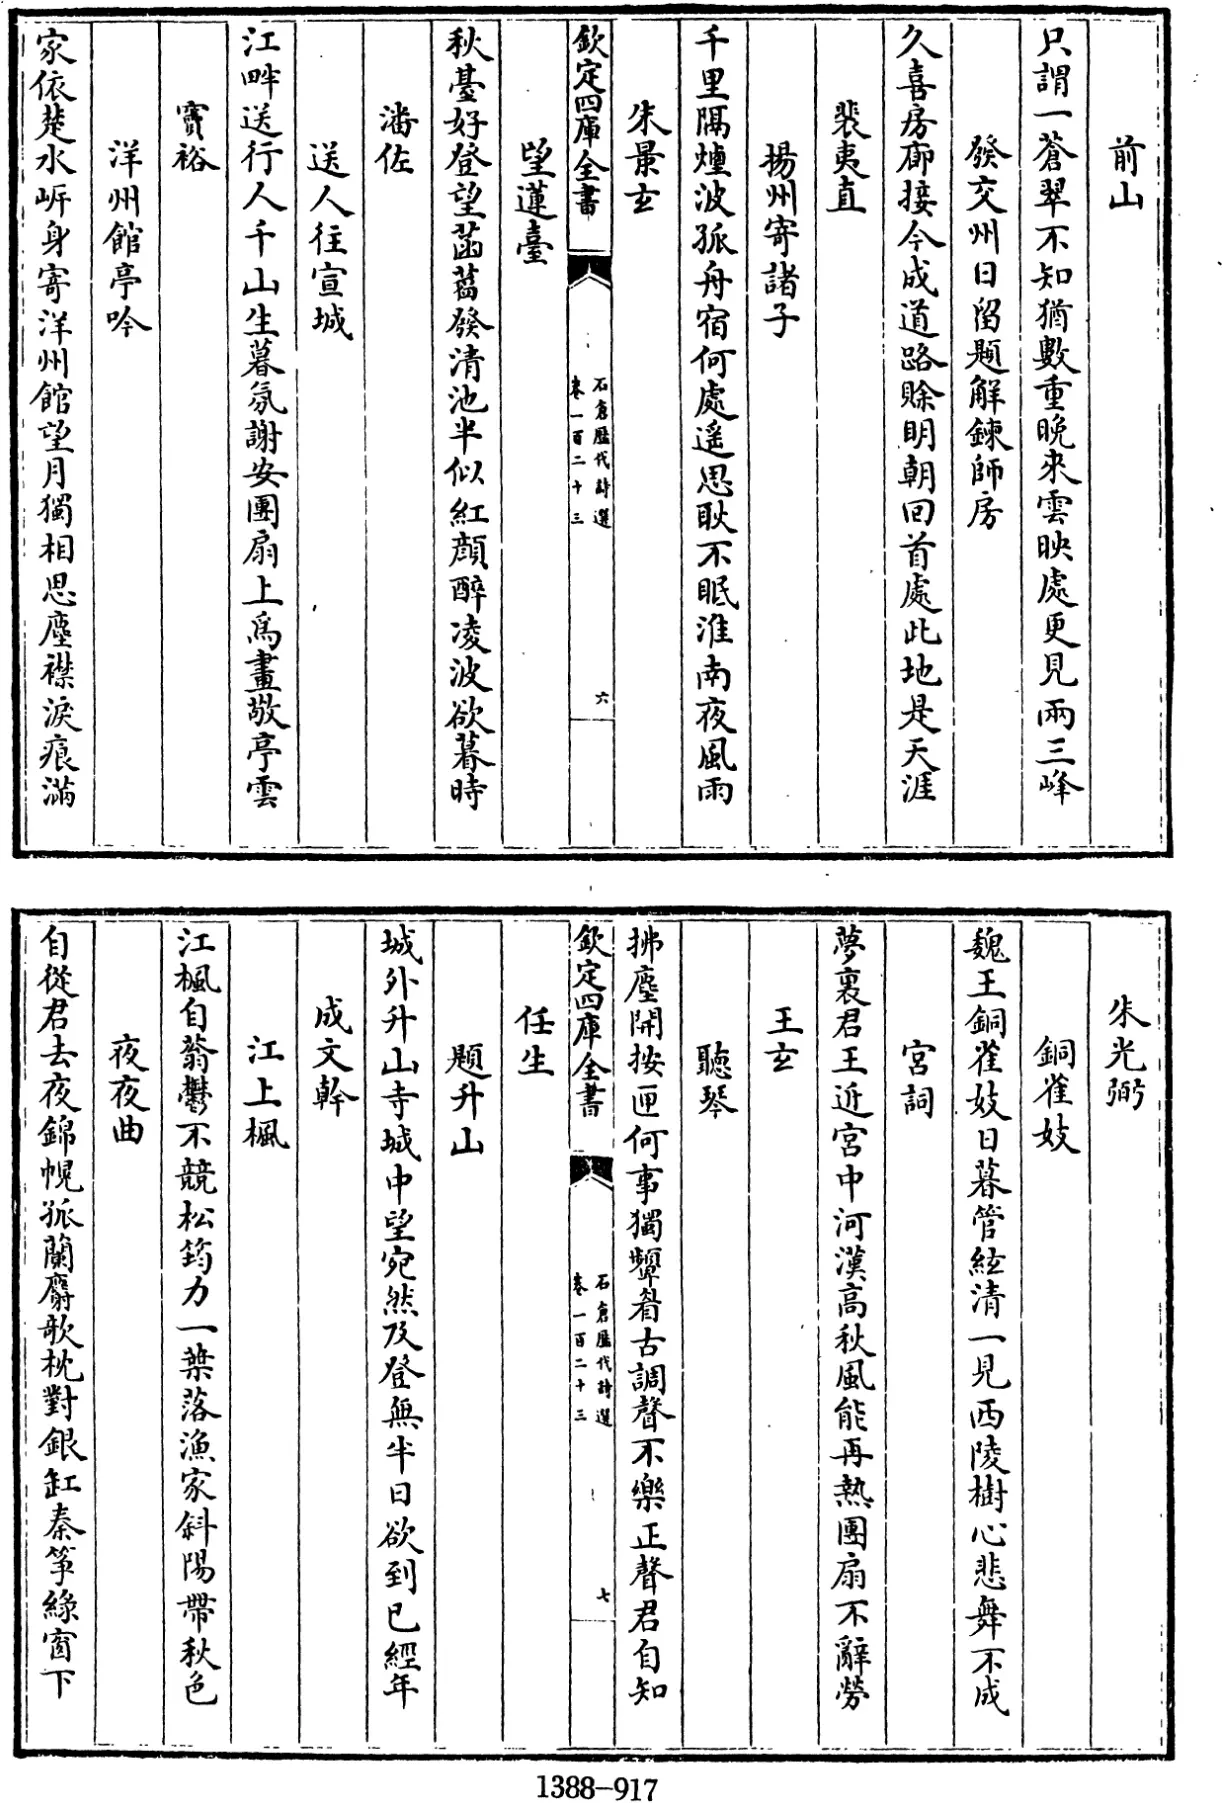 前山
只謂一蒼翠不知猶數重晚來雲映處更見兩三峰
發交州日留題解鍊師房
久喜房廊接今成道路賒明朝回首處此地是天涯
裴夷直
揚州寄諸子
千里隔煙波孤舟宿何處遥思耿不眠淮南夜風雨
朱景玄
欽定四庫全書
石倉歷代詩選
卷一百二十三
六
望蓮臺
秋臺好登望菡萏發清池半似紅顔醉凌波欲暮時
潘佐
送人往宣城
江畔送行人千山生暮氛謝安團扇上爲畫敬亭雲
竇裕
洋州館亭吟
家依楚水㟁身寄洋州館望月獨相思塵襟淚痕滿
朱光弼
銅雀妓
魏王銅雀妓日暮管絃清一見西陵樹心悲舞不成
宫詞
夢裏君王近宫中河漢高秋風能再熱團扇不辭勞
王玄
聽琴
拂塵開按匣何事獨顰眉古調聲不樂正聲君自知
欽定四庫全書
石倉歷代詩選
卷一百二十三
七
任生
題升山
城外升山寺城中望宛然及登無半日欲到已經年
成文幹
江上楓
江楓自蓊鬱不競松筠力一葉落漁家斜陽帶秋色
夜夜曲
自從君去夜錦幌孤蘭麝欹枕對銀缸秦箏緑窗下
1388-917